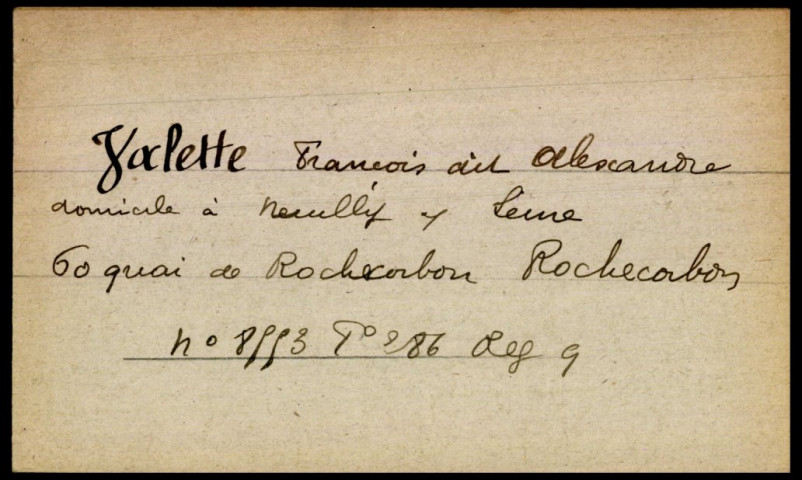 Valette Francois dit Alexandre
domicile à Neuilly s/ Seine
60 quai de Rochecorbon Rochecorbon
no 8553 F° 286 Reg 9